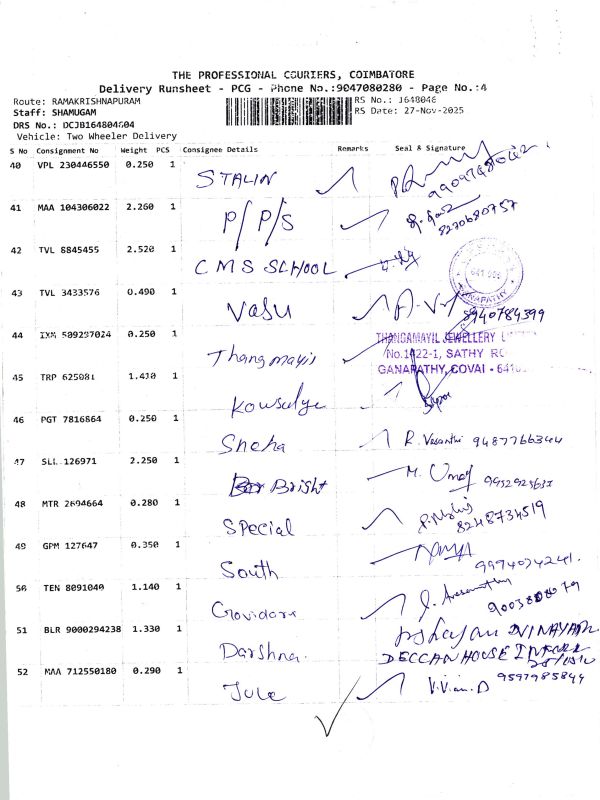 THE PROFESSIONAL COURIERS, COIMBATORE
Delivery Runsheet - PCG - Phone No.:9047080280 - Page No.:4
Route: RAMAKRISHNAPURAM RS No.: J648046
Staff: SHAMUGAM RS Date: 27-Nov-2025
DRS No.: DCJB164804604
Vehicle: Two Wheeler Delivery
S No Consignment No Weight PCS Consignee Details Remarks Seal & Signature
40 VPL 230446550 0.250 1 STALIN
41 MAA 104306022 2.260 1 P/P/S 8270680757
42 TVL 8845455 2.520 1 CMS SCHOOL
43 TVL 3433576 0.490 1 Vasu 8940784399
44 IXM 509297024 0.250 1 Thangmayis
THANGAMAYIL JEWELLERY
No.1422-1, SATHY RO
GANAPATHY, COVAI - 6410
45 TRP 625081 1.410 1 Kowsalya
46 PGT 7816864 0.250 1 Sneha R. Vasanthi 9487766344
47 SLL 126971 2.250 1 Bright M. 9952925637
48 MTR 2694664 0.280 1 Special 8248734519
49 GPM 127647 0.350 1 South 9994024241.
50 TEN 8091040 1.140 1
51 BLR 9000294238 1.330 1 Darshna. VINAYAM
DECCAN HOUSE
52 MAA 712550180 0.290 1 Jule V.Vian.D 9597985844